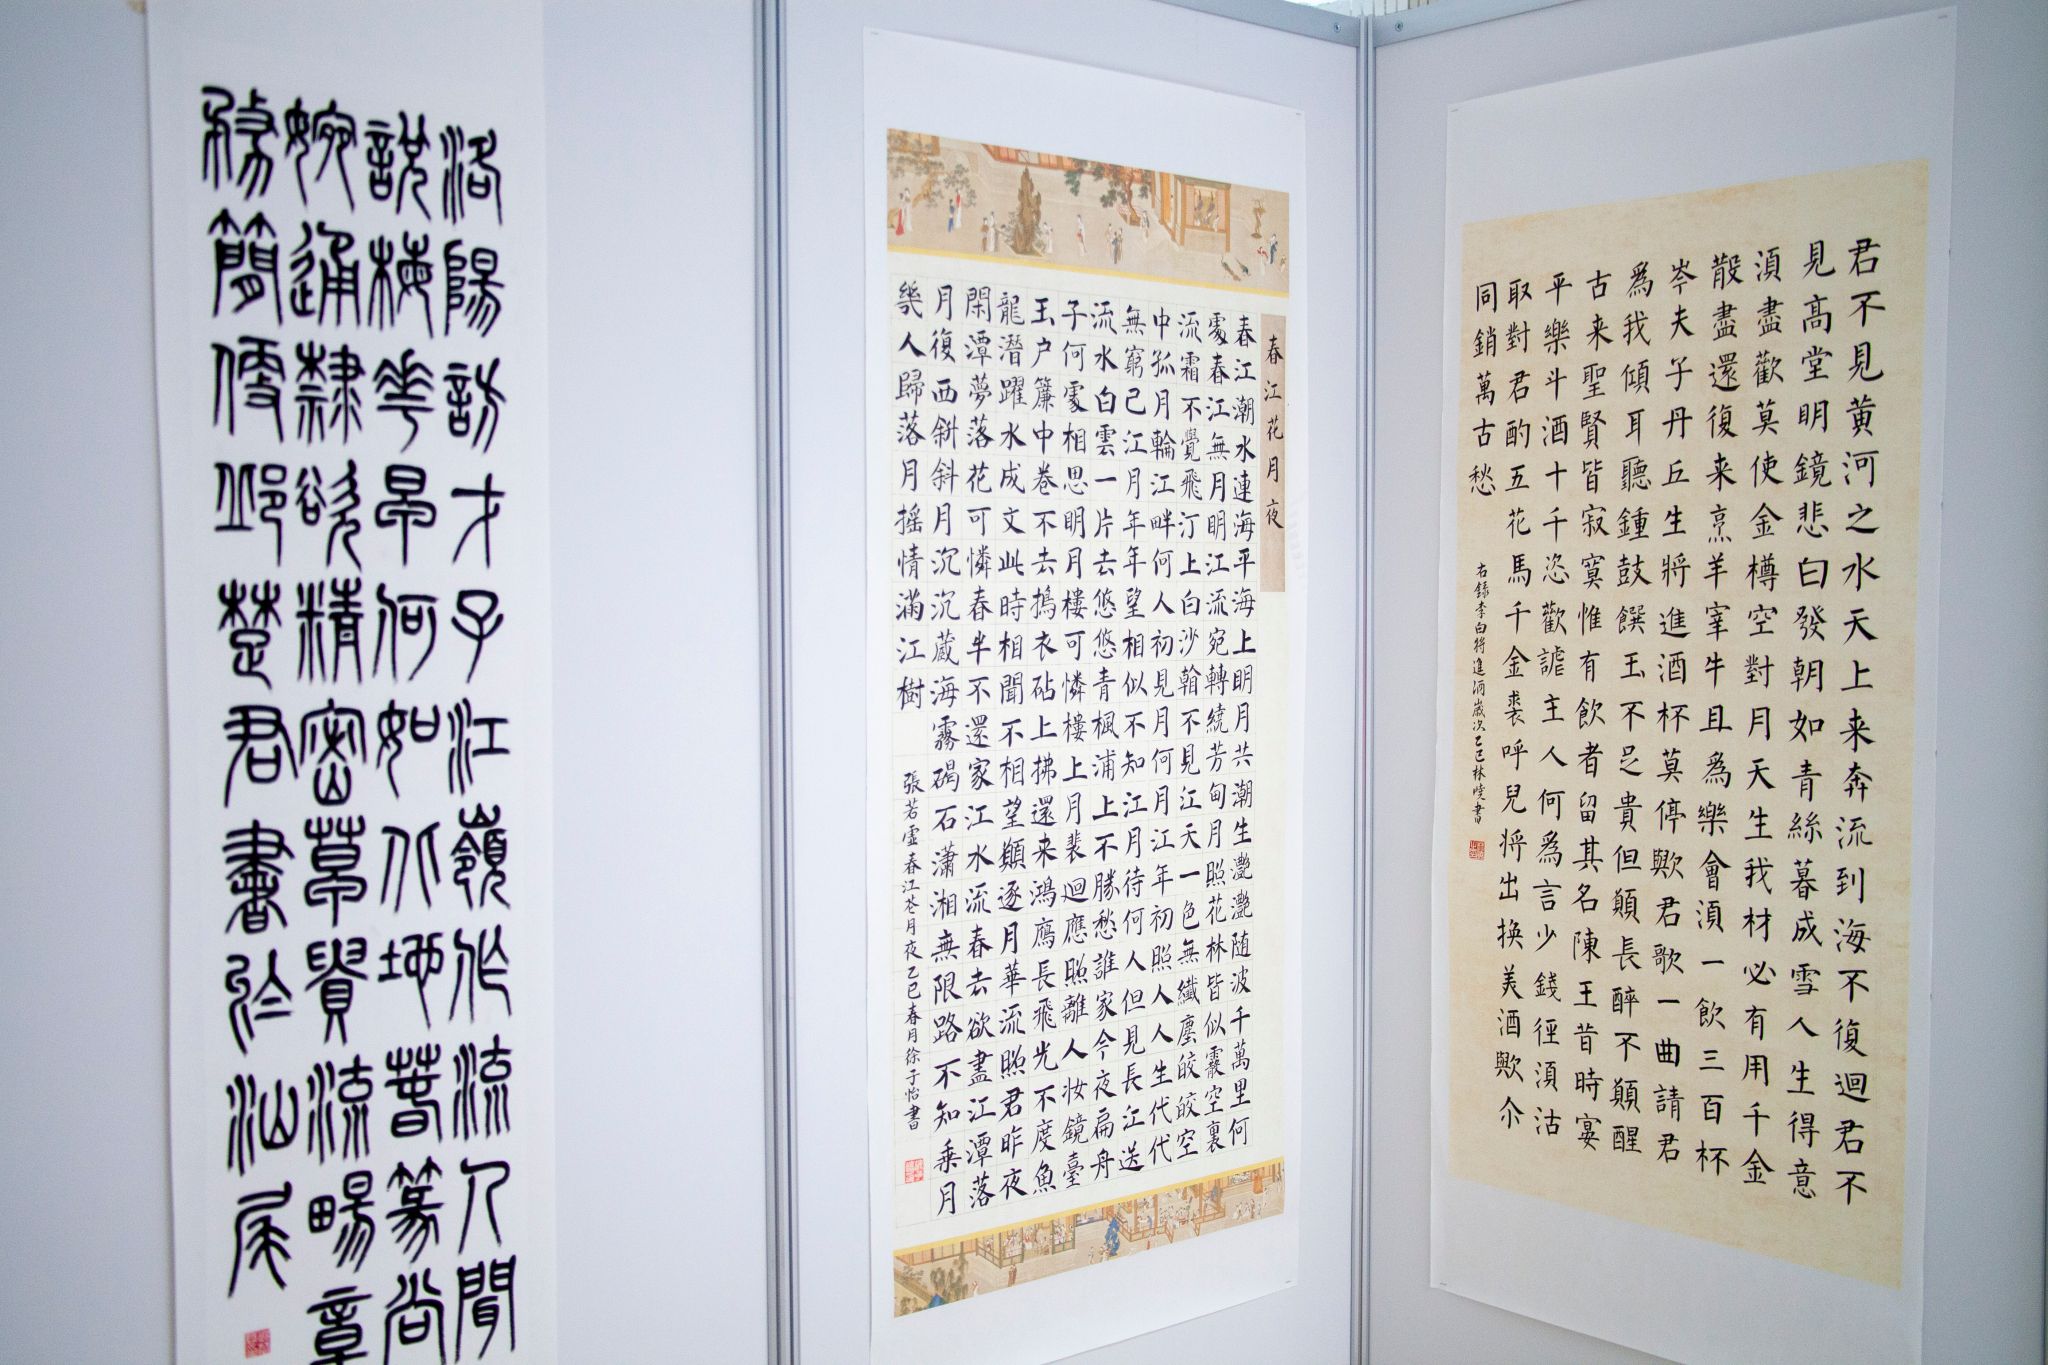 君不見黄河之水天上来奔流到海不復迴君不
見高堂明鏡悲白發朝如青絲暮成雪人生得意
須盡歡莫使金樽空對月天生我材必有用千金
散盡還復来烹羊宰牛且為樂會須一飲三百杯
岑夫子丹丘生將進酒杯莫停歟君歌一曲請君
為我傾耳聽鍾鼓饌玉不足貴但願長醉不願醒
古来聖賢皆寂寞惟有飲者留其名陳王昔時宴
平樂斗酒十千恣歡謔主人何為言少錢徑須沽
取對君酌五花馬千金裘呼兒將出换美酒歟尒
同銷萬古愁
右録李白将進酒歲次乙巳林曉書
春江花月夜
春江潮水連海平海上明月共潮生灔灔随波千萬里何
處春江無月明江流宛轉繞芳甸月照花林皆似霰空裏
流霜不覺飛汀上白沙翰不見江天一色無纖塵皎皎空
中孤月輪江畔何人初見月何月江年初照人人生代代
無窮已江月年年望相似不知江月待何人但見長江送
流水白雲一片去悠悠青楓浦上不勝愁誰家今夜扁舟
子何處相思明月樓可憐樓上月裴迴應照離人妝鏡臺
玉户簾中卷不去搗衣砧上拂還来鴻鴈長飛光不度魚
龍潛躍水成文此時相聞不相望願逐月華流照君昨夜
閑潭夢落花可憐春半不還家江水流春去欲盡江潭落
月復西斜斜月沉沉藏海霧碣石瀟湘無限路不知乘月
幾人歸落月摇情滿江樹
張若虛春江花月夜乙巳春月徐子怡書
洛陽訪才子江嶺作流人聞
說梅花早何如北地春篆尚
婉通隸欲精密草貴流暢章
務簡便邱楚君書於汕尾